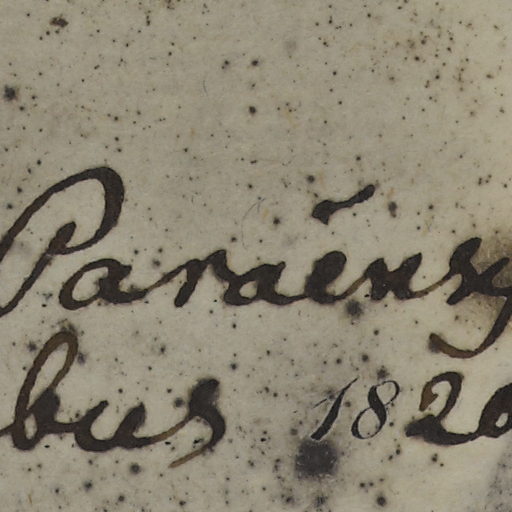 Paraěnsy
bus 1820